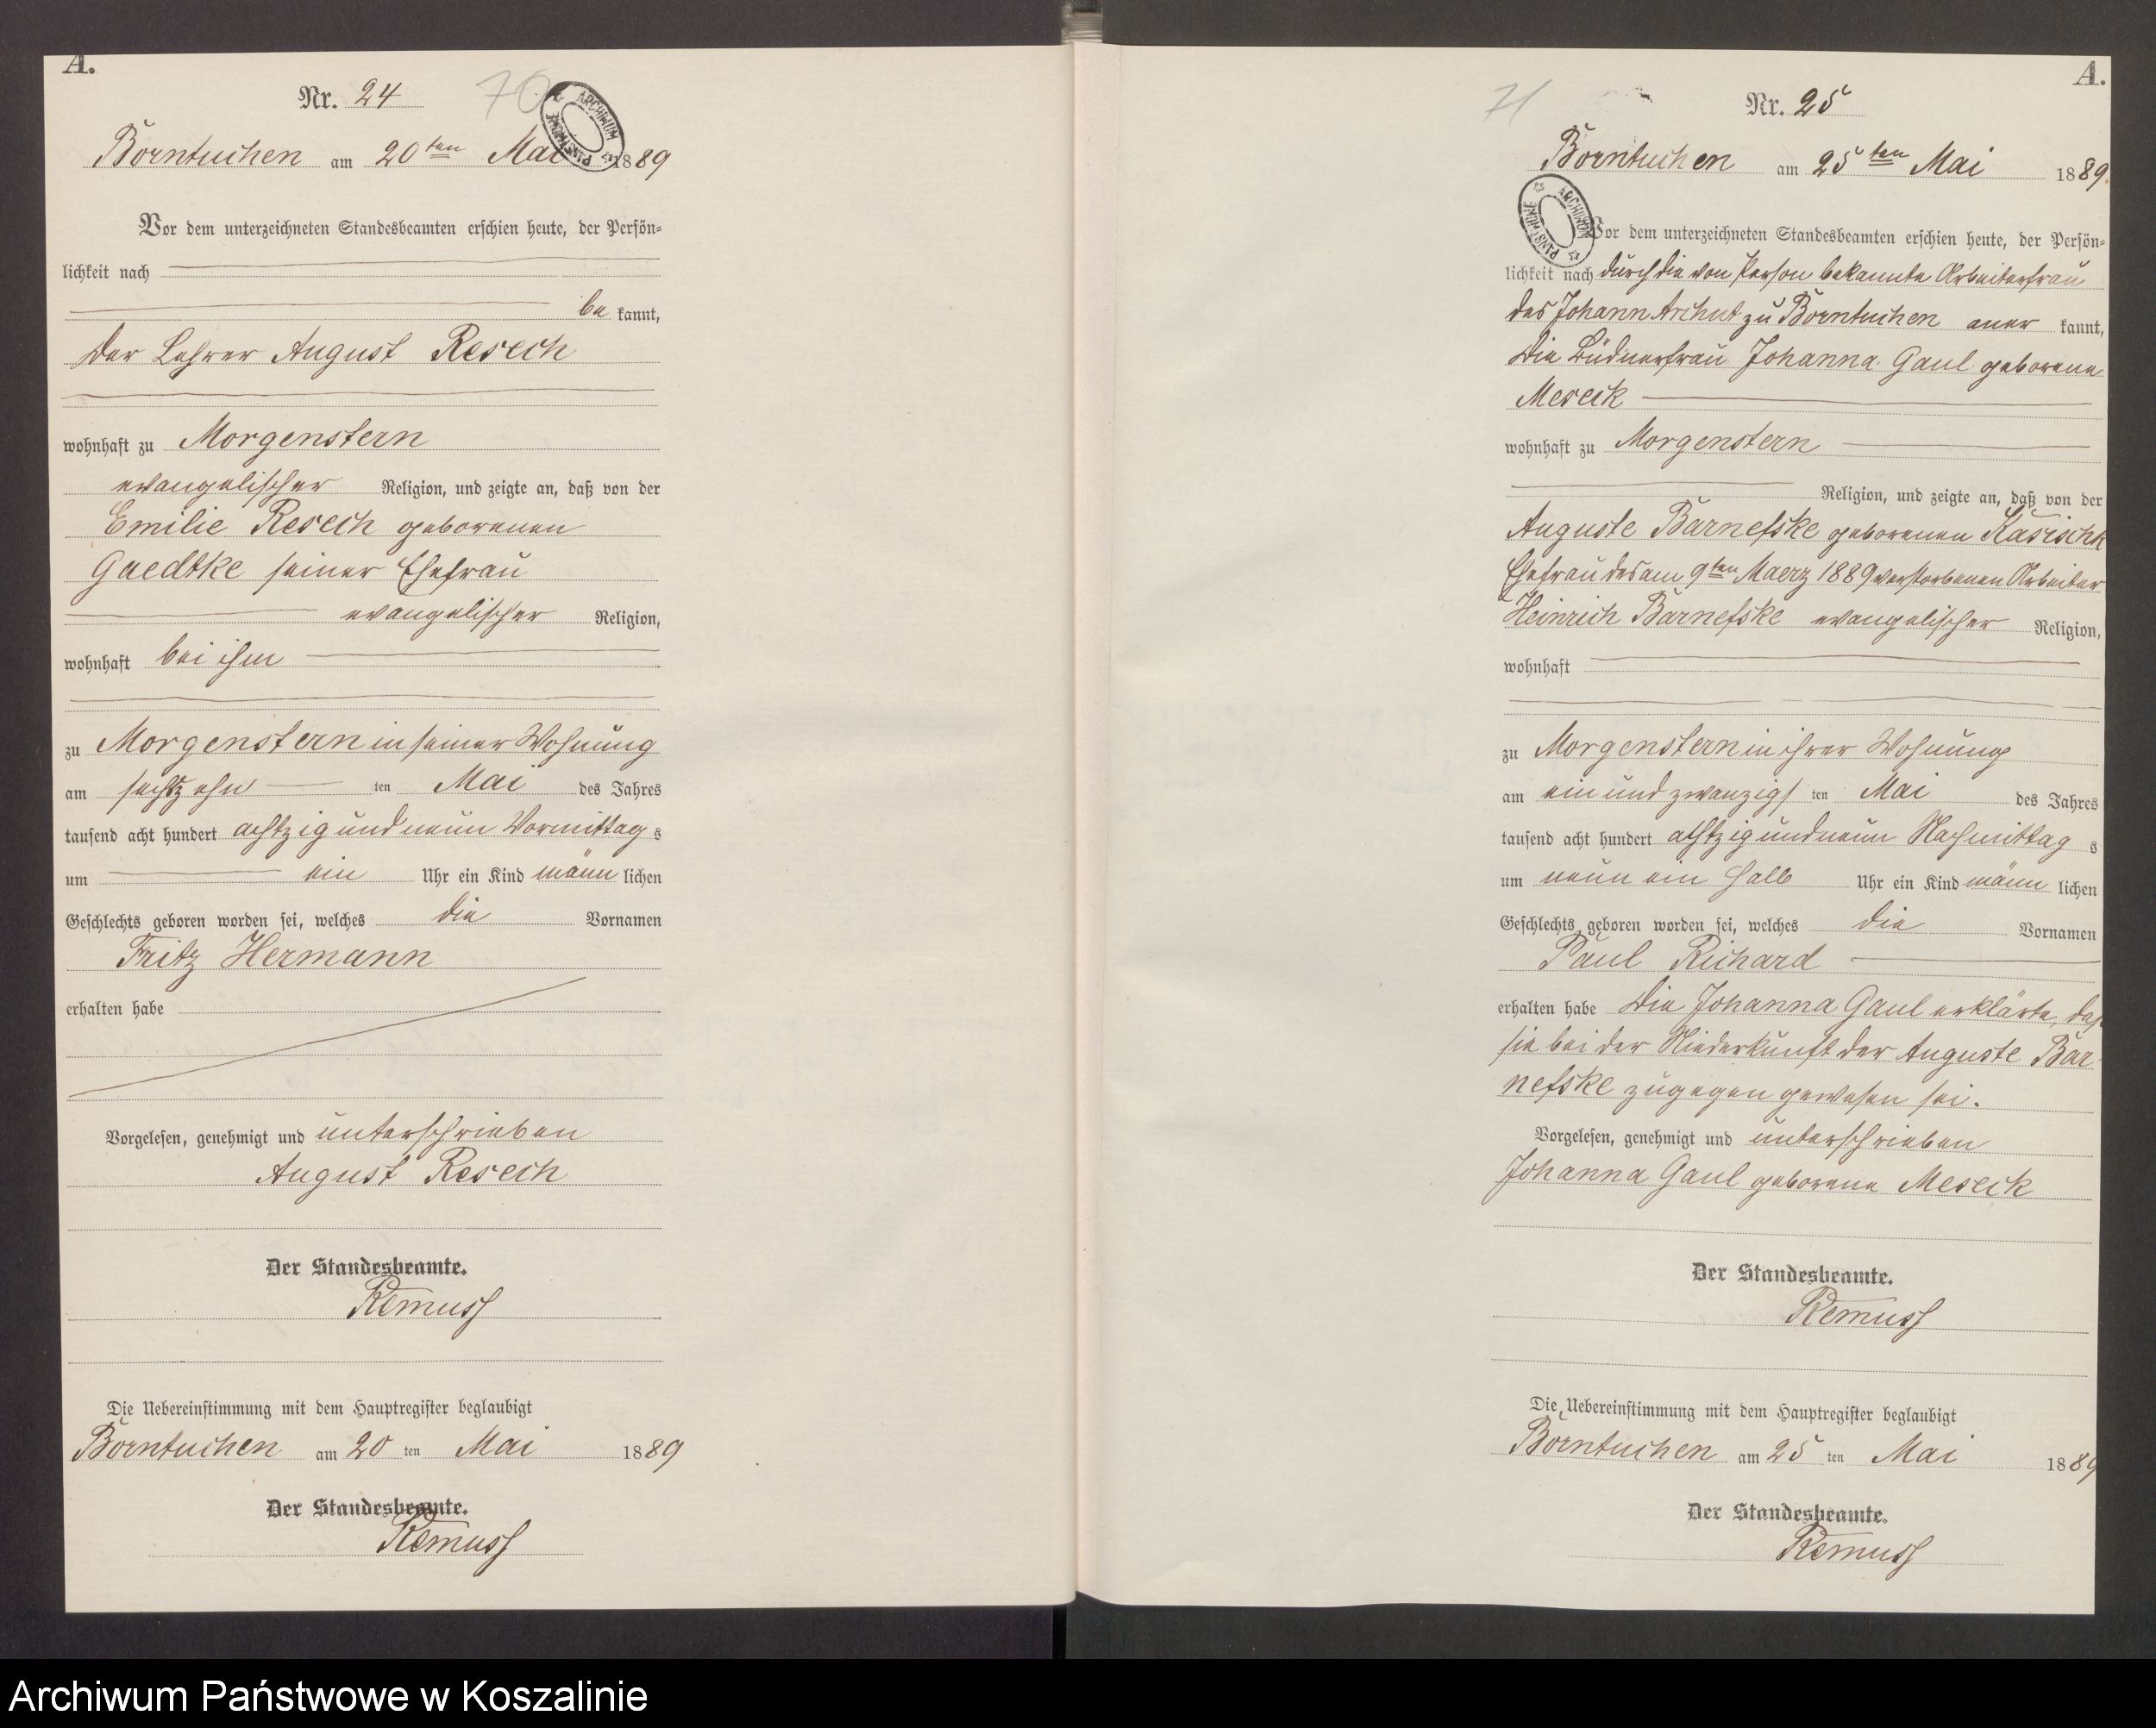 A.
Nr. 24
70
ARCHIWUM PAŃSTWOWE
Borntuchen am 20ten Mai 1889
Vor dem unterzeichneten Standesbeamten erschien heute, der Persön-
lichkeit nach
be kannt,
der Lehrer August Resech
wohnhaft zu Morgenstern
evangelischer Religion, und zeigte an, daß von der
Emilie Resech geborenen
Gaedtke seiner Ehefrau
evangelischer Religion,
wohnhaft bei ihm
zu Morgenstern in seiner Wohnung
am sechszehn ten Mai des Jahres
tausend acht hundert achtzig und neun Vormittag s
um ein Uhr ein Kind männ lichen
Geschlechts geboren worden sei, welches die Vornamen
Fritz Hermann
erhalten habe
Vorgelesen, genehmigt und unterschrieben
August Resech
Der Standesbeamte.
Remuss
Die Uebereinstimmung mit dem Hauptregister beglaubigt
Borntuchen am 20 ten Mai 1889
Der Standesbeamte.
Remuss
A.
71
Nr. 25
Borntuchen am 25ten Mai 1889.
ARCHIWUM PAŃSTWOWE
Vor dem unterzeichneten Standesbeamten erschien heute, der Persön-
lichkeit nach durch die von Person bekannte Arbeiterfrau
des Johann Archut zu Borntuchen aner kannt,
die Büdnerfrau Johanna Gaul geborene
Meseck
wohnhaft zu Morgenstern
Religion, und zeigte an, daß von der
Auguste Barnefske geborenen Kasischk
Ehefrau des am 9ten Maerz 1889 verstorbenen Arbeiter
Heinrich Barnefske evangelischer Religion,
wohnhaft
zu Morgenstern in ihrer Wohnung
am ein und zwanzigs ten Mai des Jahres
tausend acht hundert achtzig und neun Nachmittag s
um neun ein halb Uhr ein Kind männ lichen
Geschlechts geboren worden sei, welches die Vornamen
Paul Richard
erhalten habe Die Johanna Gaul erklärte, daß
sie bei der Niederkunft der Auguste Bar-
nefske zugegen gewesen sei.
Vorgelesen, genehmigt und unterschrieben
Johanna Gaul geborene Meseck
Der Standesbeamte.
Remuss
Die Uebereinstimmung mit dem Hauptregister beglaubigt
Borntuchen am 25 ten Mai 1889
Der Standesbeamte.
Remuss
Archiwum Państwowe w Koszalinie